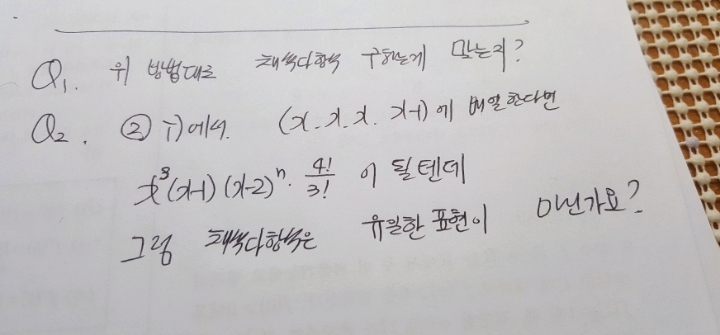 Q1. 위 방법대로 채색다항식 구하는게 맞는지?
Q2. ② i)에서. (x. x. x. x-1)에 배열한다면
x³(x-1)(x-2)ⁿ · 4!/3! 이 될텐데
그럼 채색다항식은 유일한 표현이 아닌가요?